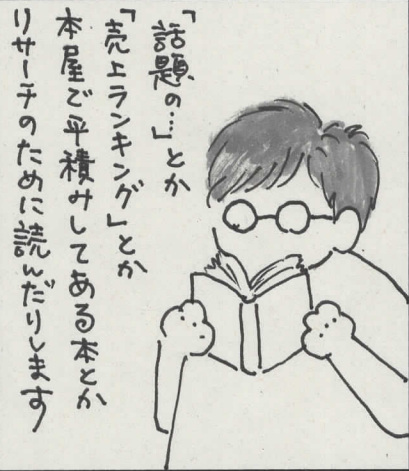 「話題の…」とか
「売上ランキング」とか
本屋で平積みしてある本とか
リサーチのために読んだりします